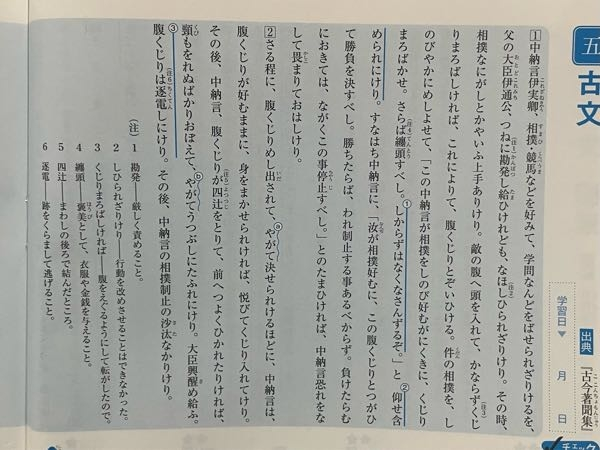 五
古文
出典
『古今著聞集』
ここんちょもんじゅう
学習日▼　月　日
チェック
1 中納言伊実卿、相撲、競馬などを好みて、学問なんどをばせられざりけるを、
父の大臣伊通公、つねに勘発し給ひけれども、なほしひられざりけり。その時、
相撲なにがしとかやいふ上手ありけり。敵の腹へ頭を入れて、かならずくじ
りまろばしければ、これによりて、腹くじりとぞいひける。件の相撲を、し
のびやかにめしよせて、「この中納言が相撲をしのび好むがにくきに、くじり
まろばかせ。さらば纏頭すべし。①しからずはなくなさんずるぞ。」と②仰せ含
められにけり。すなはち中納言に、「汝が相撲好むに、この腹くじりとつがひ
て勝負を決すべし。勝ちたらば、われ制止する事あるべからず。負けたらむ
においては、ながくこの事停止すべし。」とのたまひければ、中納言恐れをな
して畏まりておはしけり。
2 さる程に、腹くじりめし出されて、ⓐやがて決せられけるほどに、中納言は、
腹くじりが好むままに、身をまかせられければ、悦びてくじり入れてけり。
その後、中納言、腹くじりが四辻をとりて、前へつよくひかれたりければ、
頸もをれぬばかりおぼえて、ⓑやがてうつぶしにたふれにけり。大臣興醒め給ふ。
③腹くじりは逐電しにけり。その後、中納言の相撲制止の沙汰なかりけり。
(注)
1　勘発――厳しく責めること。
2　しひられざりけり――行動を改めさせることはできなかった。
3　くじりまろばしければ――腹をえぐるようにして転がしたので。
4　纏頭――褒美として、衣服や金銭を与えること。
5　四辻――まわしの後ろで結んだところ。
6　逐電――跡をくらまして逃げること。